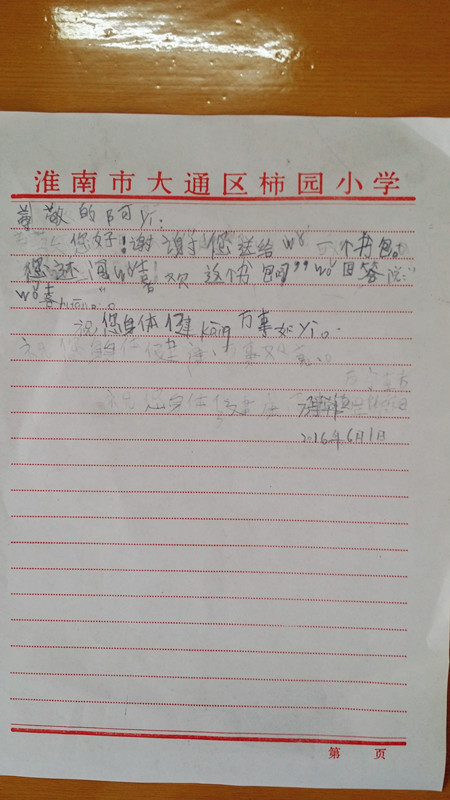 淮南市大通区柿园小学
尊敬的阿yí：
您好！谢谢您送给wǒ 一个书包。
您还问wǒ喜欢这个书包吗？”wǒ回答说：“
wǒ喜huān。”
祝您身体健kāng 万事如yì。
2016年6月1日
第 页